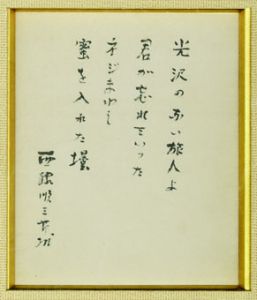 光沢のない旅人よ
君が忘れていった
ネジまわし
蜜を入れた壜
西脇順三郎